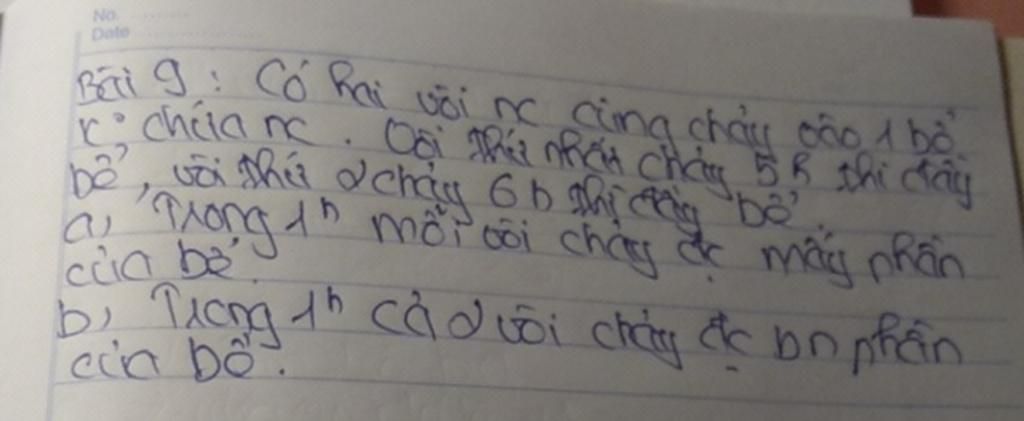 No.
Date
Bài 9 : Có hai vòi nc cùng chảy vào 1 bể
chứa nc. Vòi thứ nhất chảy 5h thì đầy
bể, vòi thứ 2 chảy 6h thì đầy bể
a) Trong 1h mỗi vòi chảy đc mấy phần
của bể
b) Trong 1h cả 2 vòi chảy đc bn phần
của bể.